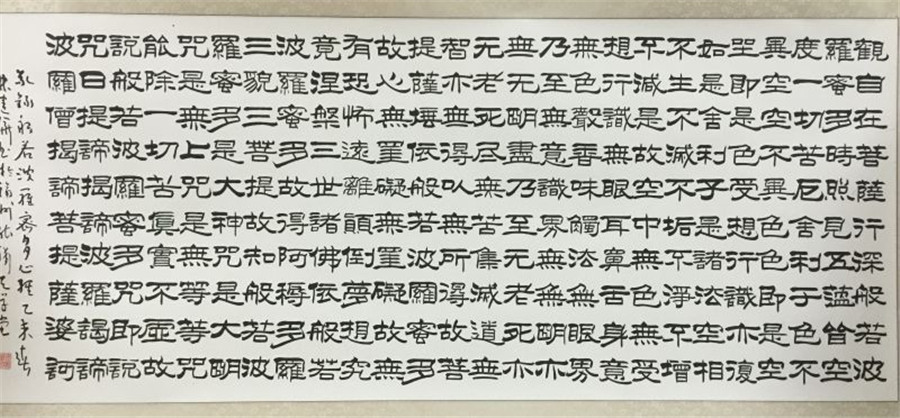 觀自在菩薩行深般若波
羅蜜多時照見五蘊皆空
度一切苦厄舍利子色不
異空空不異色色即是空
空即是色受想行識亦復
如是舍利子是諸法空相
不生不滅不垢不淨不增
不減是故空中無色無受
想行識無眼耳鼻舌身意
無色聲香味觸法無眼界
乃至無意識界無無明亦
無无明盡乃至无老死亦
无老死盡無苦集滅道無
智亦無得以無所得故菩
提薩埵依般若波羅蜜多
故心無罣礙無罣礙故無
有恐怖遠離顛倒夢想究
竟涅槃三世諸佛依般若
波羅蜜多故得阿耨多羅
三藐三菩提故知般若波
羅蜜多是大神咒是大明
咒是無上咒是無等等咒
能除一切苦真實不虛故
說般若波羅蜜多咒即說
咒曰揭諦揭諦波羅揭諦
波羅僧揭諦菩提薩婆訶
敬錄般若波羅蜜多心經乙未春